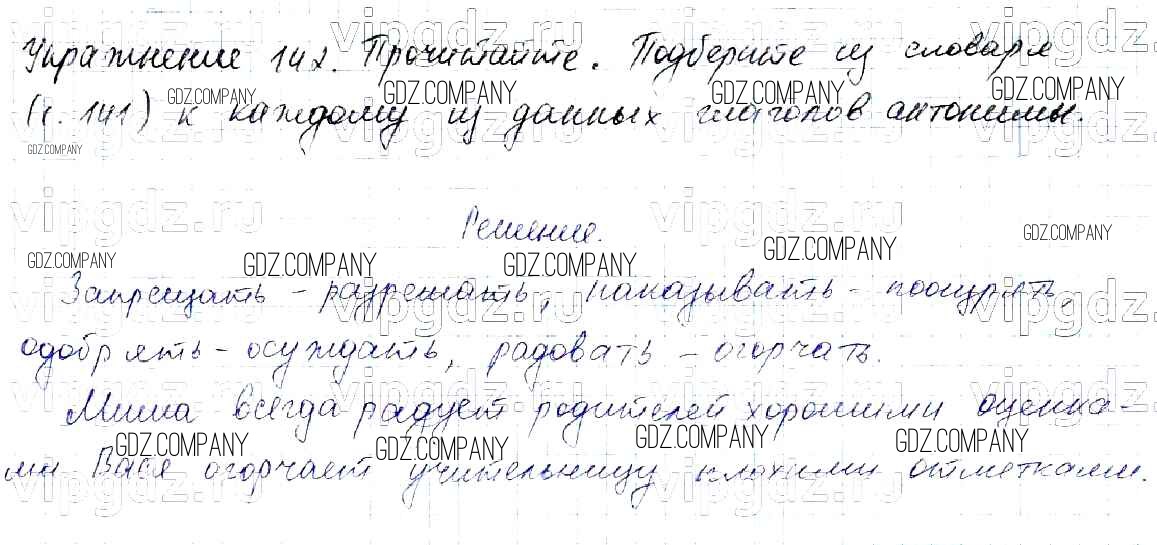 Упражнение 142. Прочитайте. Подберите из словаря
(с. 141) к каждому из данных глаголов антонимы.
Решение.
Запрещать - разрешать, наказывать - поощрять,
одобрять - осуждать, радовать - огорчать.
Миша всегда радует родителей хорошими оценка-
ми. Вася огорчает учительницу плохими отметками.
vipgdz.ru
GDZ.COMPANY